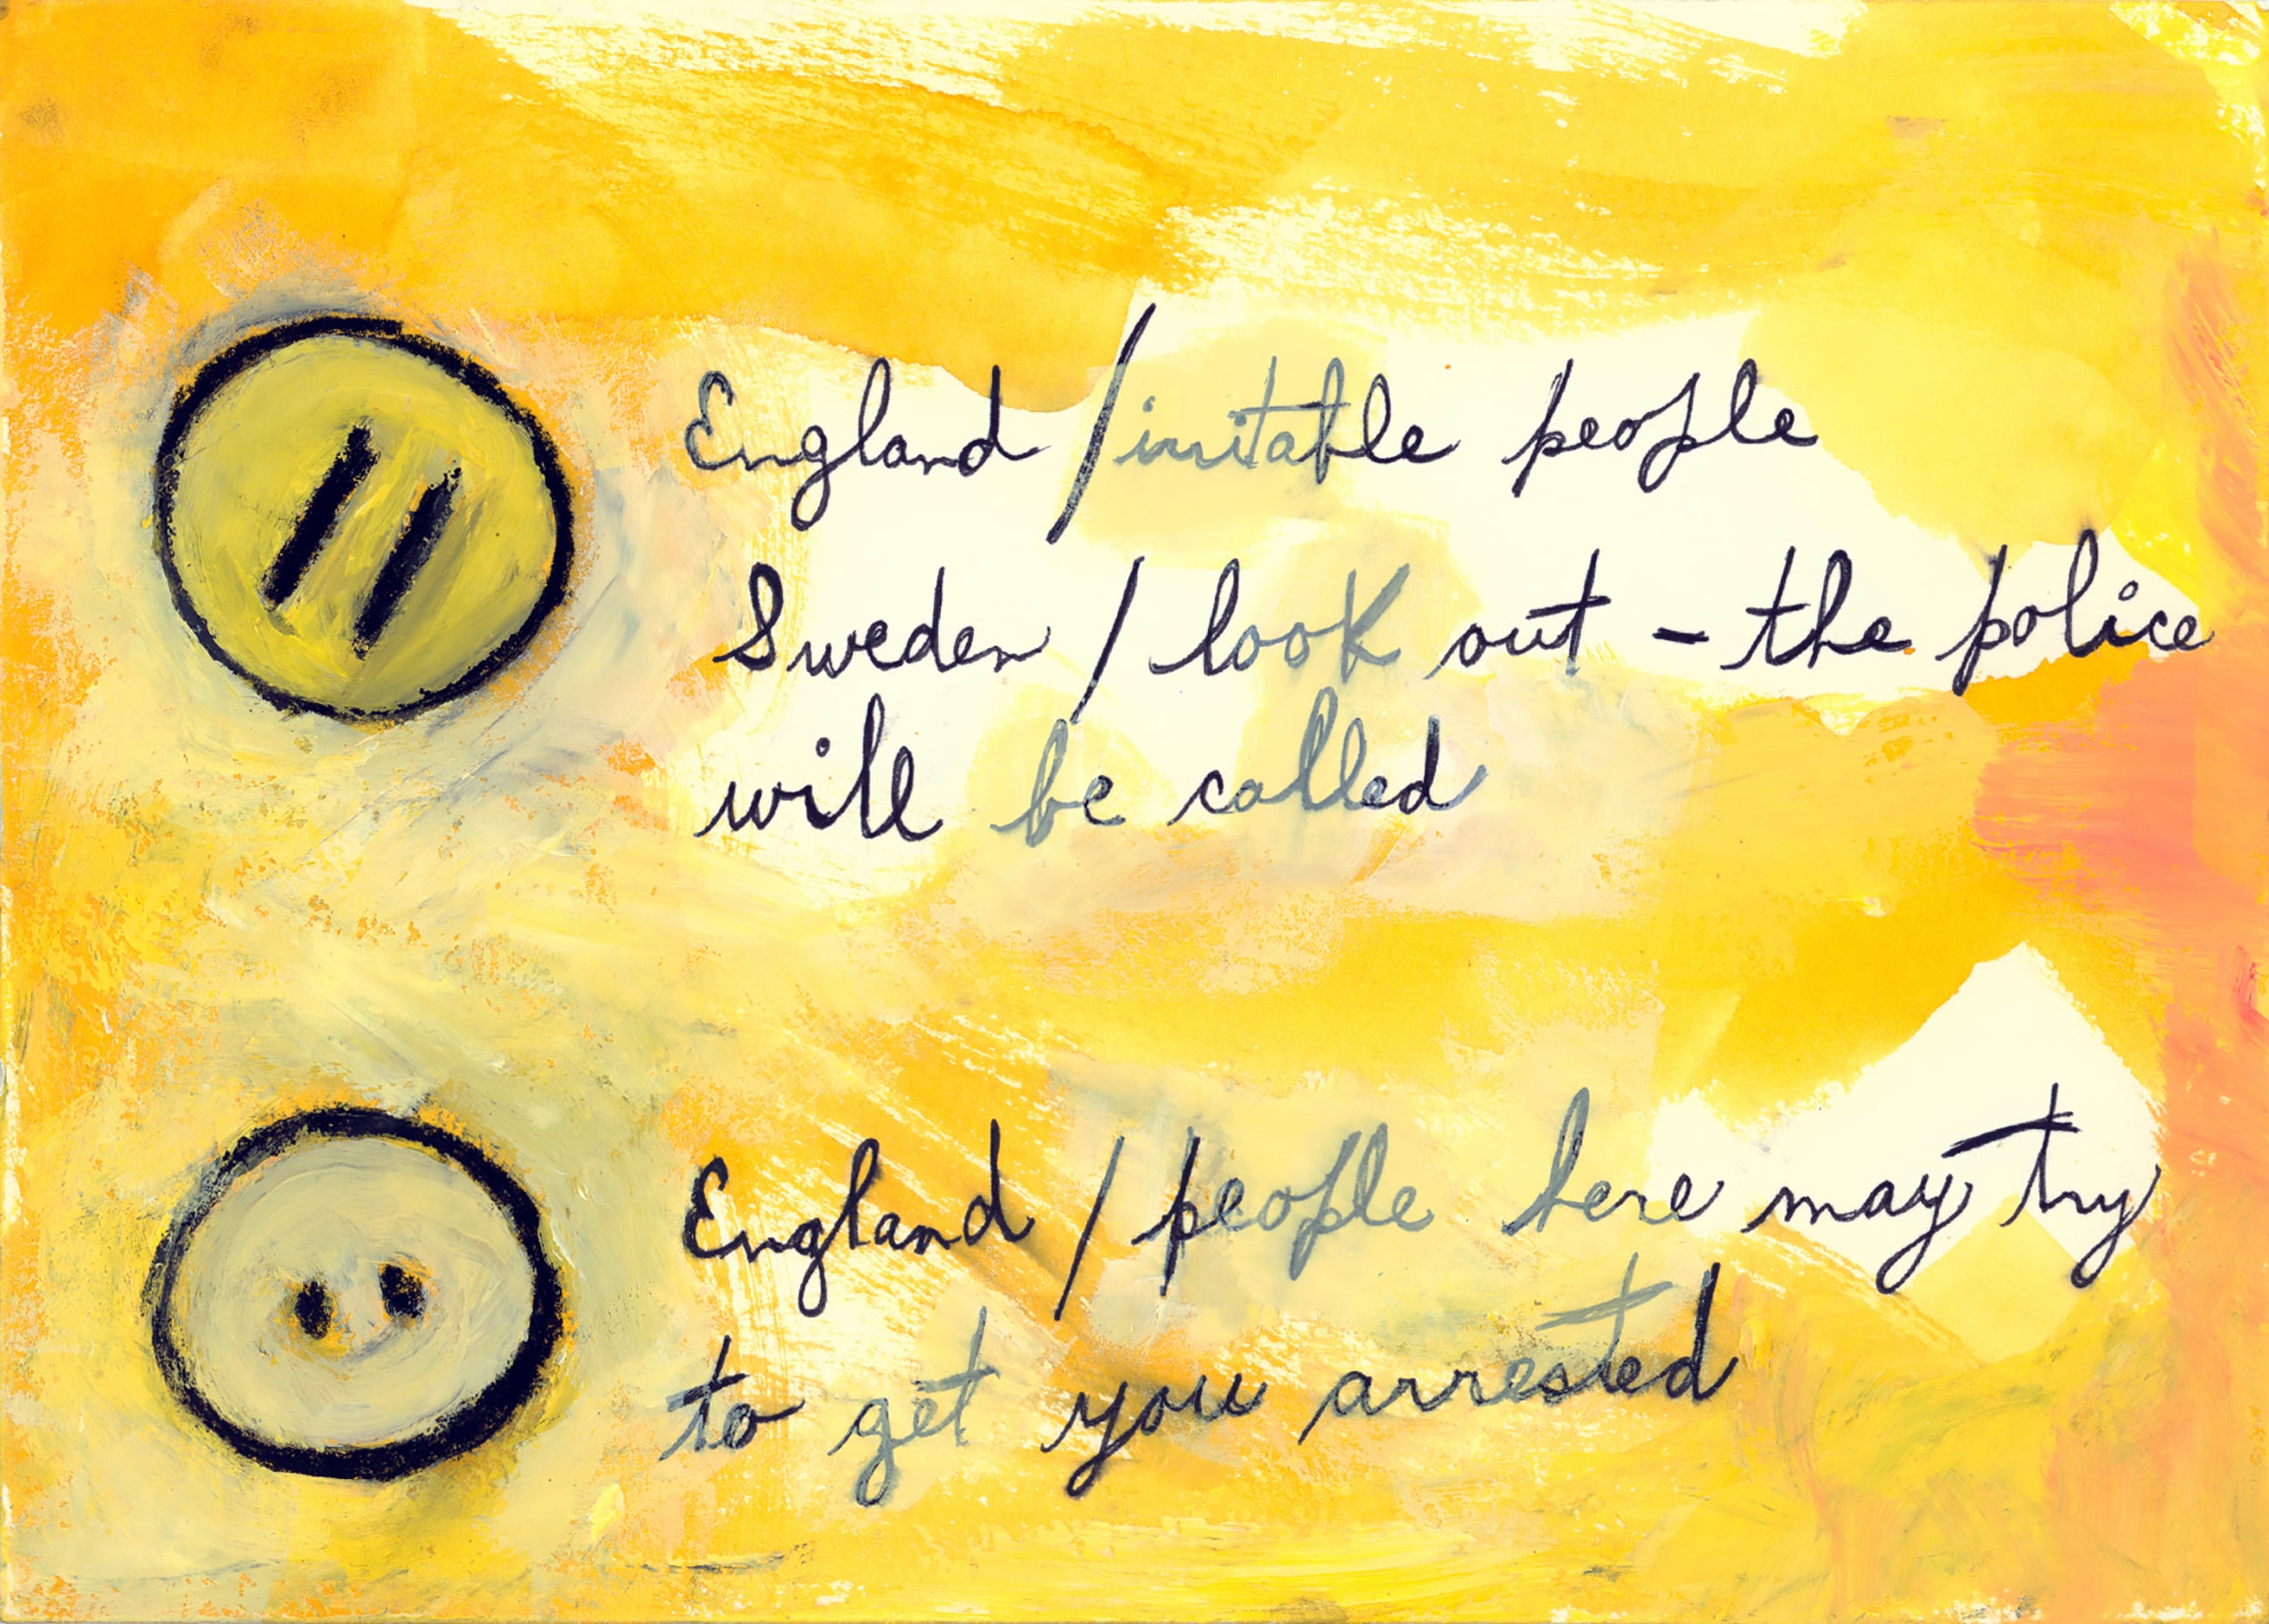 England / irritable people
Sweden / look out - the police
will be called
England / people here may try
to get you arrested